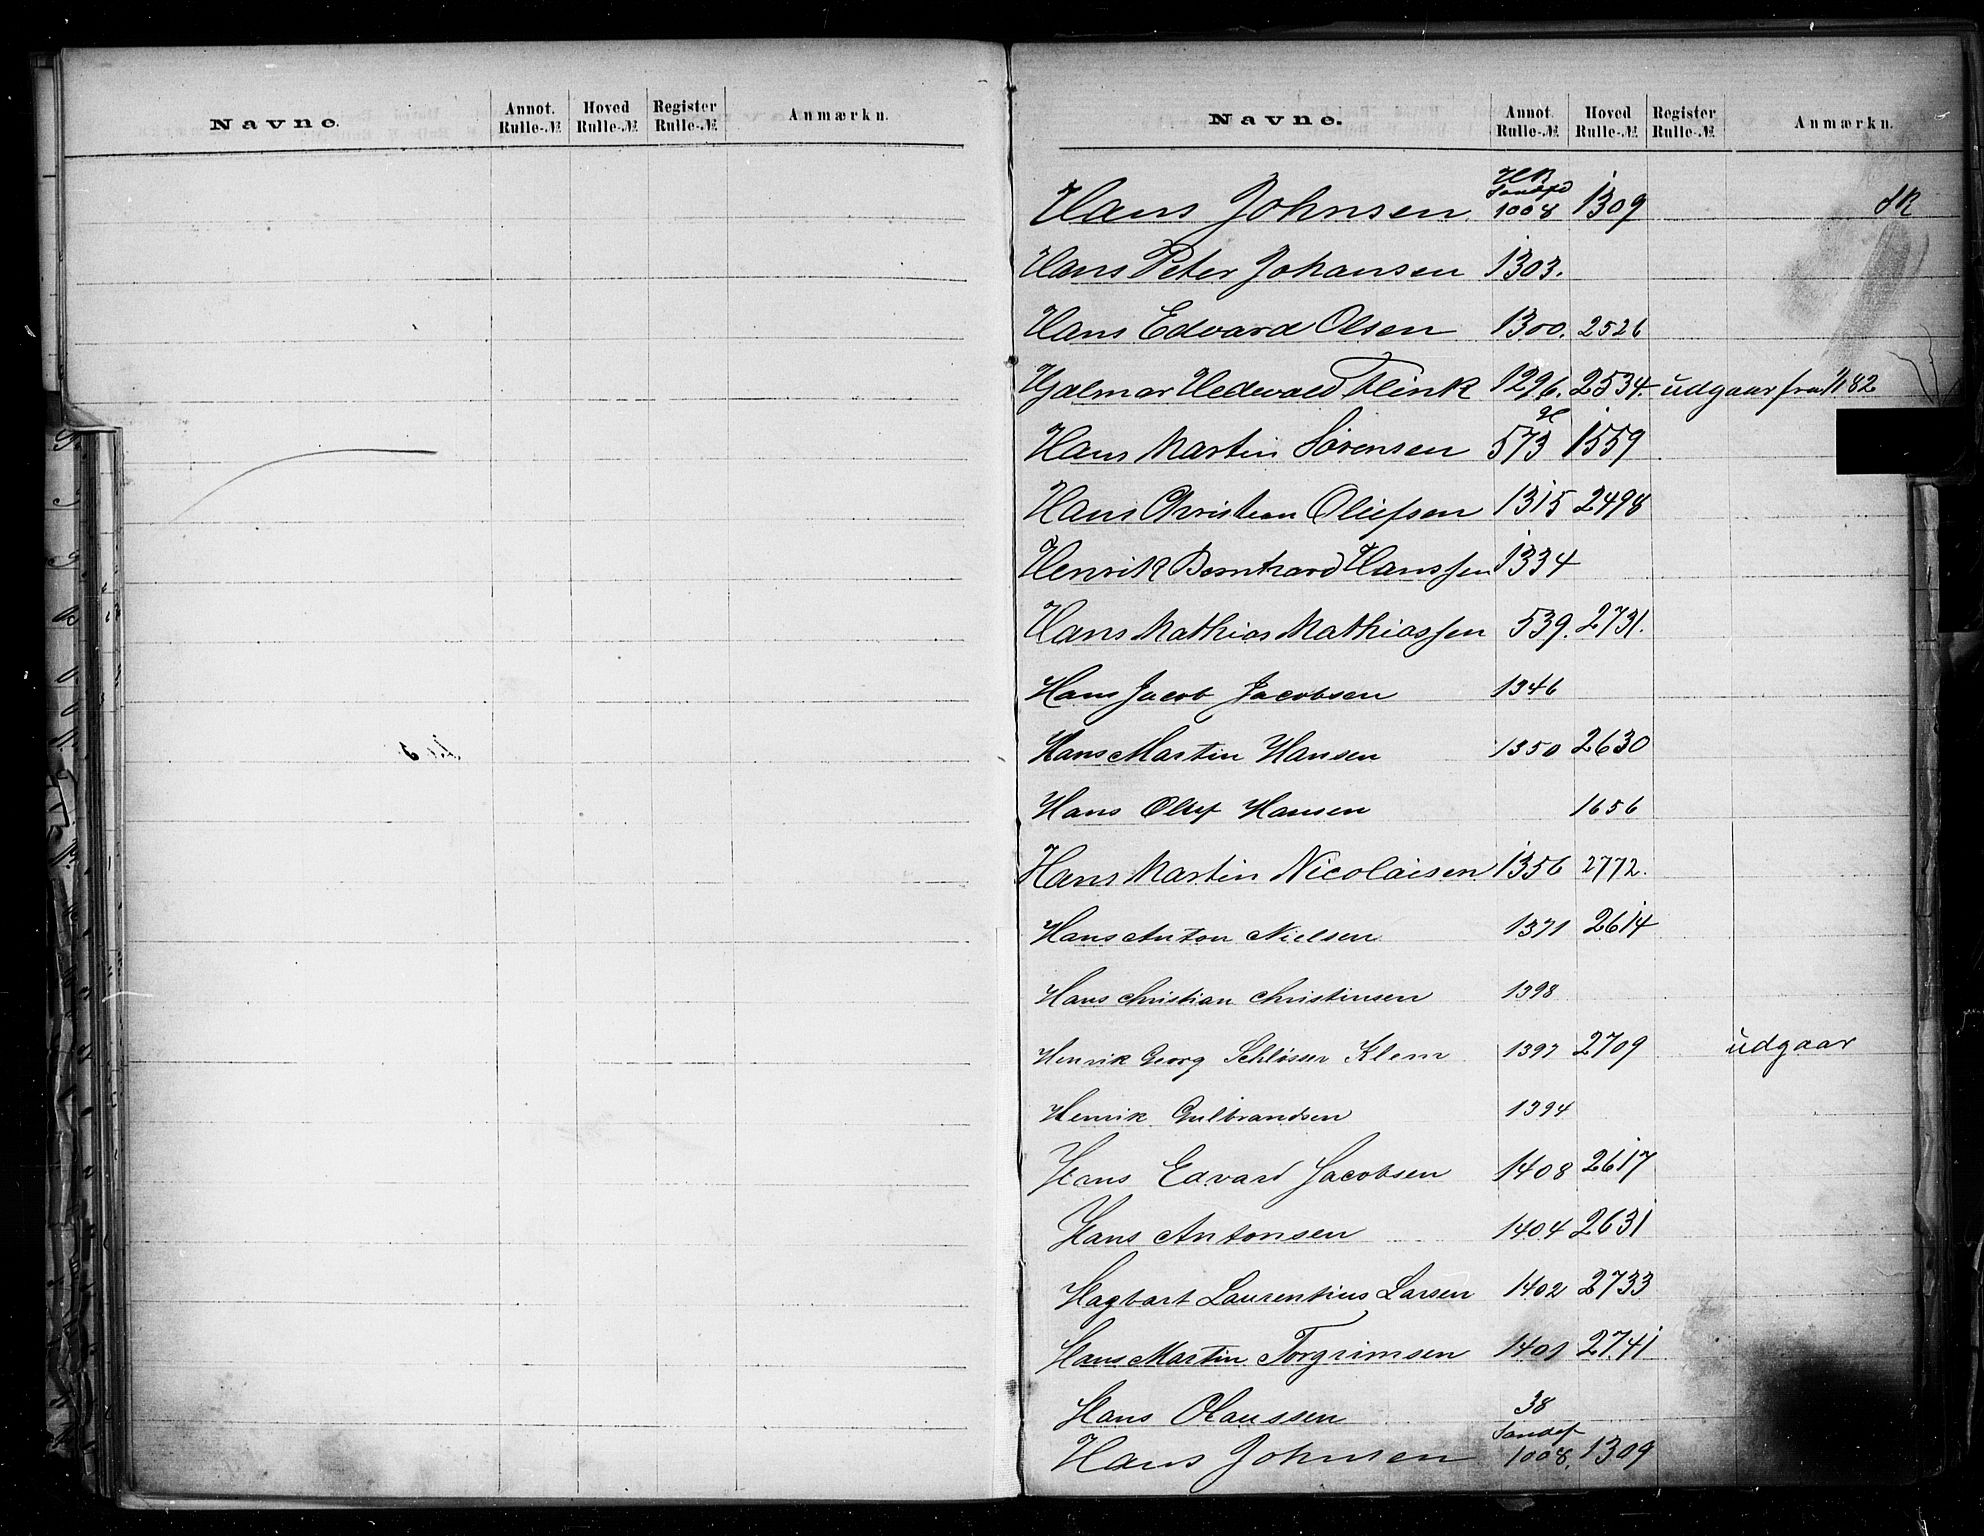 Navne.
Annot. Rulle-№
Hoved Rulle-№
Register Rulle-№
Anmærkn.
Navne.
Annot. Rulle-№
Hoved Rulle-№
Register Rulle-№
Anmærkn.
Hans Johnsen Sandefd 1008 1309
Hans Peter Johansen 1303.
Hans Edvard Olsen 1300. 2526
Hjalmar Hedevald Flink 1296. 2534. udgaar fra 1/1 82
Hans Martin Sørensen 573 1559
Hans Christian Olufsen 1315 2498
Henrik Bernhard Hanssen 1334
Hans Mathias Mathiassen 539. 2731.
Hans Jacob Jacobsen 1346
Hans Martin Hansen 1350 2630
Hans Oluf Hansen 1656
Hans Martin Nicolaisen 1356 2772.
Hans Anton Nielsen 1371 2614
Hans Christian Christensen 1398
Henrik Georg Schlösser Klem 1397 2709 udgaar
Henrik Gulbrandsen 1394
Hans Edvard Jacobsen 1408 2617
Hans Antonsen 1404 2631
Hagbart Laurentius Larsen 1402 2733
Hans Martin Torgrimsen 1401 2741
Hans Olaussen 38
Hans Johnsen Sandef 1008. 1309